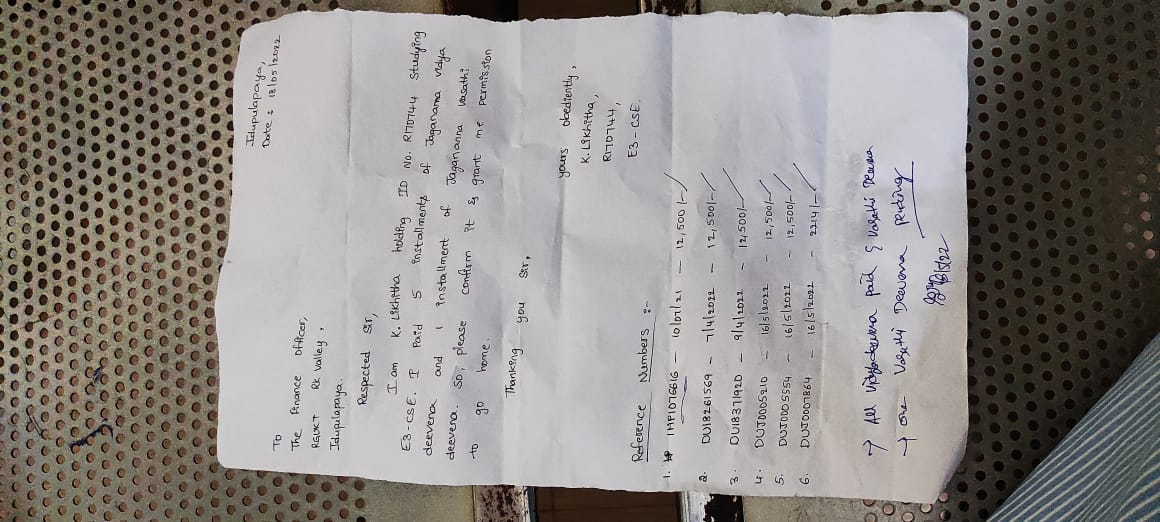 Idupulapaya,
Date : 18/05/2022
To
The Finance Officer,
RGUKT RK Valley,
Idupulapaya.
Respected Sir,
I am K. Likhitha holding ID No. R170744 Studying
E3-CSE. I Paid 5 installments of Jaganama vidya
deevena and 1 installment of Jagananna vasathi
deevena. So, please confirm it & grant me permission
to go home.
Thanking you Sir,
yours obediently,
K. Likhitha,
R170744,
E3-CSE.
Reference Numbers :-
1. IHP1076616 - 10/07/21 - 12,500/-
2. DUI8261569 - 7/4/2022 - 12,500/-
3. DUI8371920 - 9/4/2022 - 12,500/-
4. DUJ0005210 - 16/5/2022 - 12,500/-
5. DUJ0005554 - 16/5/2022 - 12,500/-
6. DUJ0007864 - 16/5/2022 - 2214/-
→ All Vidyadeevena paid & Vasathi Deevena
→ one Vasathi Deevena pending
18/5/22